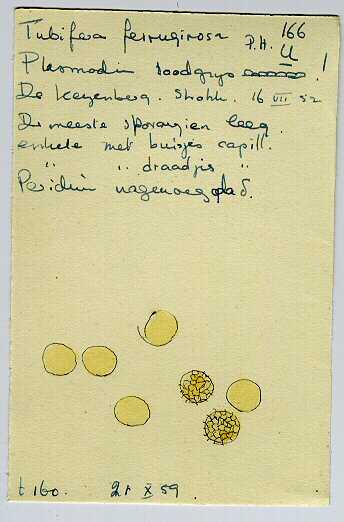 Tubifera ferruginosa P.H. 166
U
Plasmodium loodgrijs !
De Keyenberg. Strohh. 16 VII 52
De meeste sporangien leeg.
enkele met buisjes capill.
" " draadjes "
Peridium nagenoeg glad.
t 160. 21 X 59